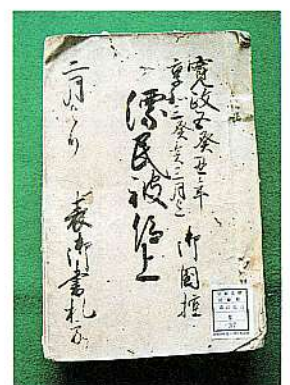 寛政五癸丑年
享和三癸亥三月迄
御国控
漂民被仰上
二月より
表御書札方